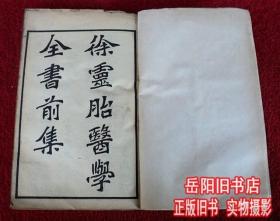 徐靈胎醫學
全書前集
岳阳旧书店
正版旧书 实物拍摄